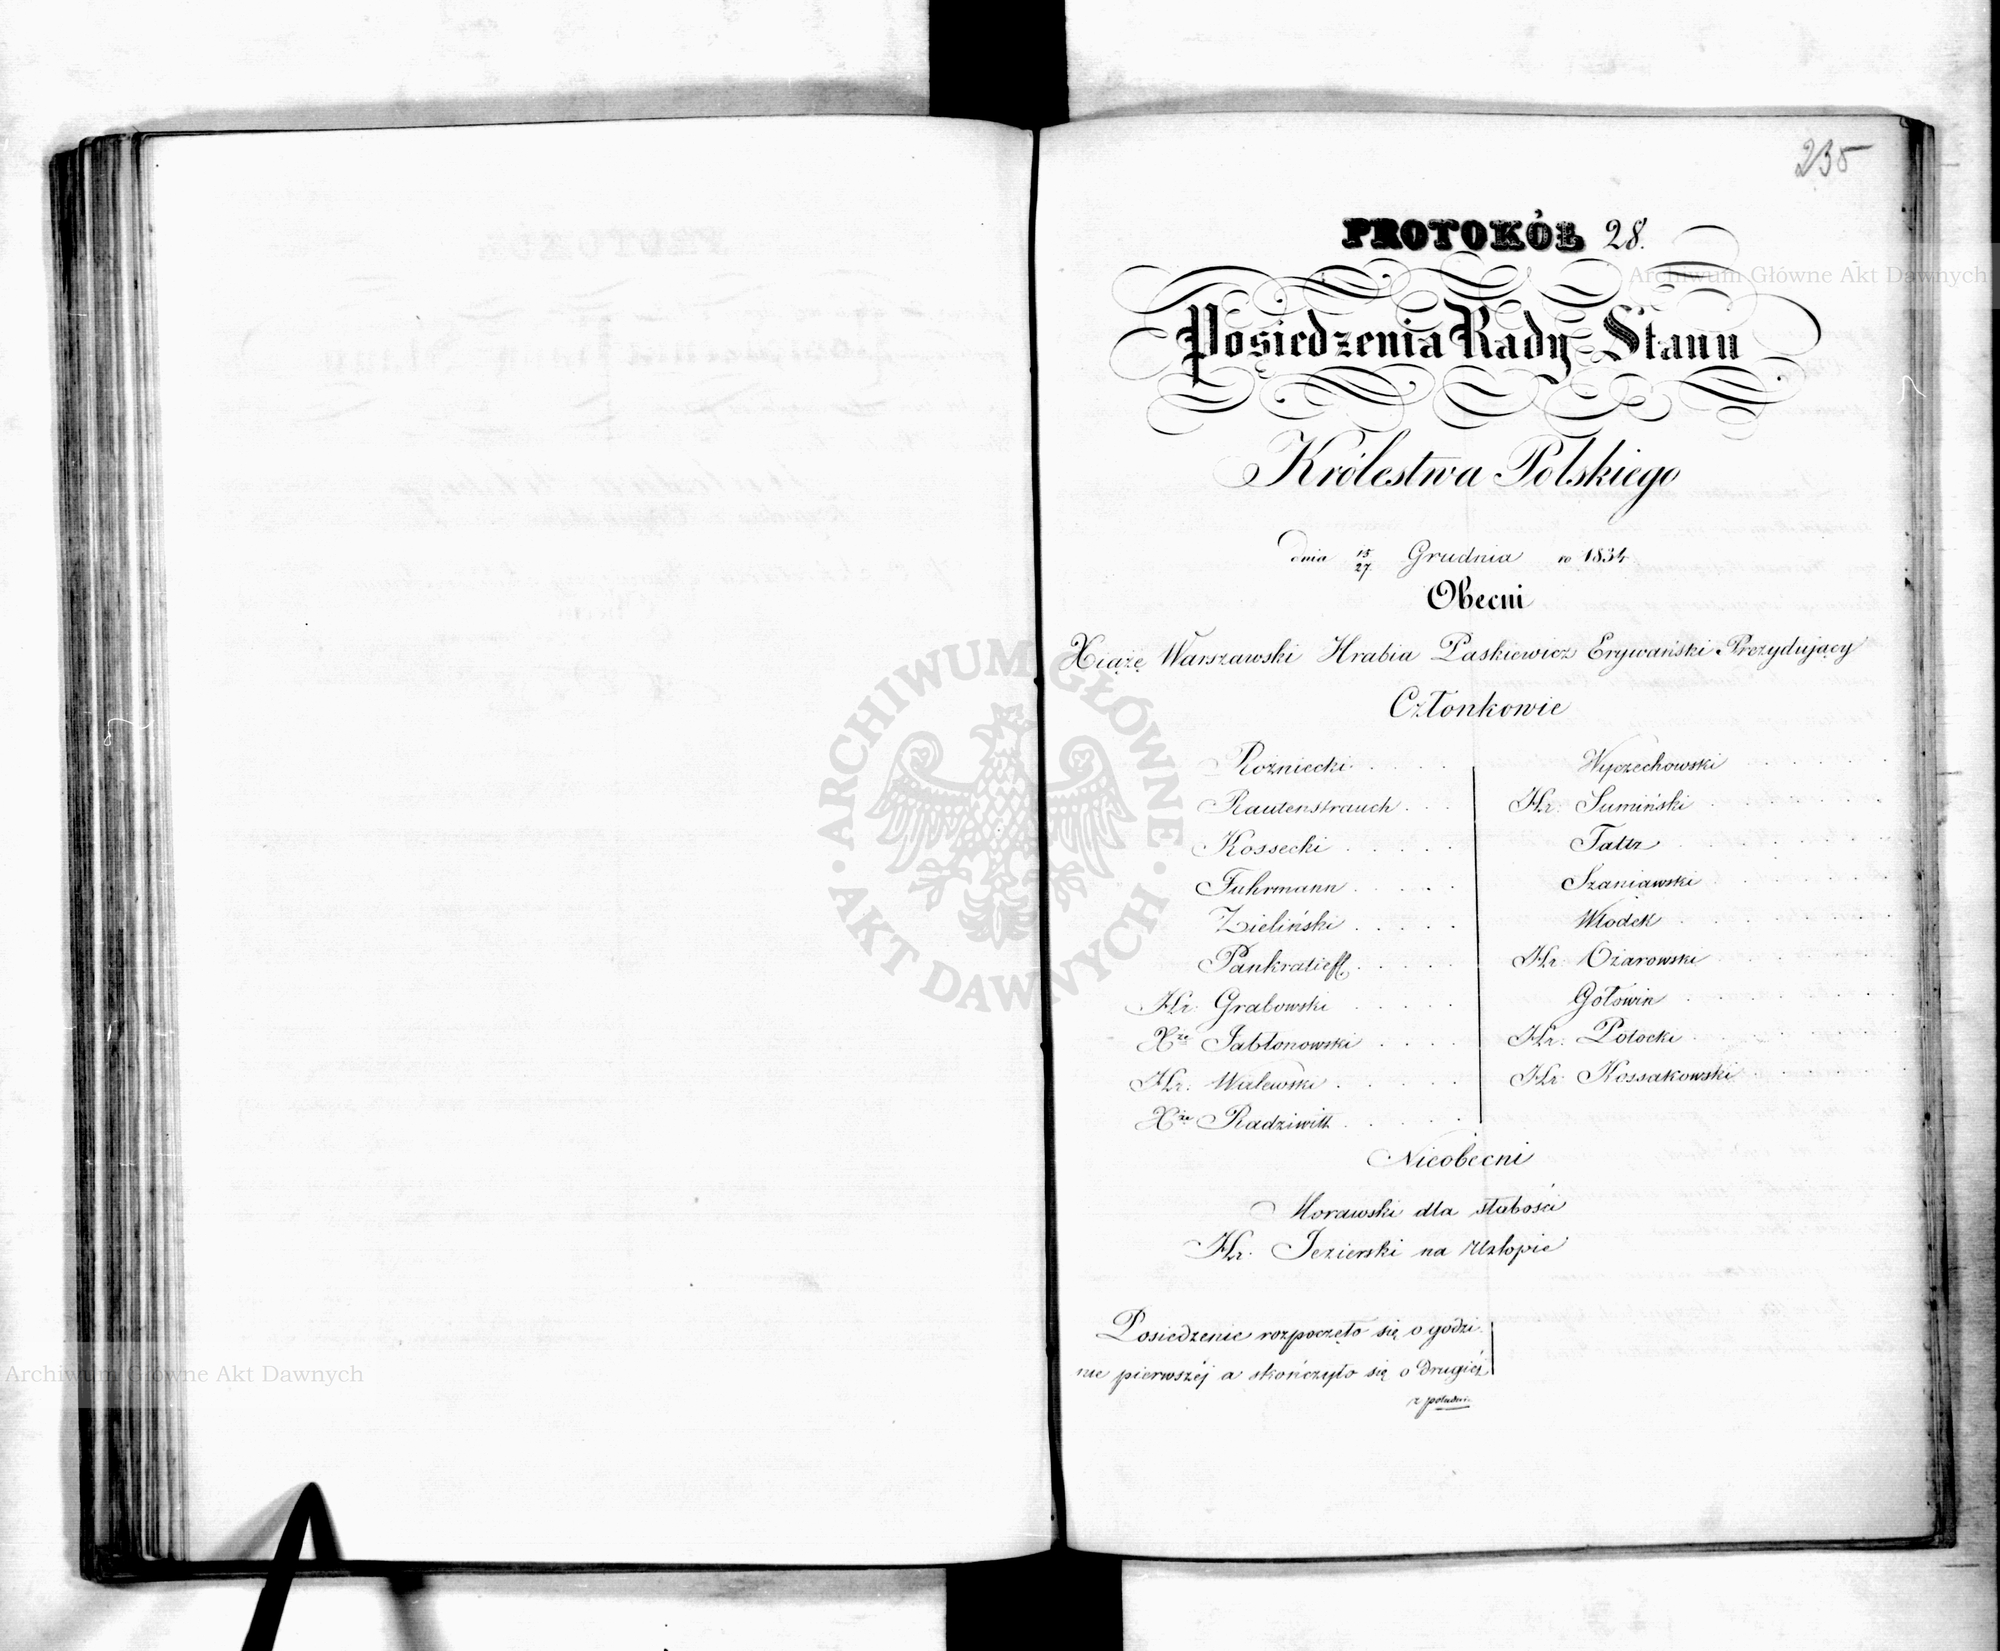 235
PROTOKÓŁ 28.
Posiedzenia Rady Stanu
Królestwa Polskiego
dnia 15/27 Grudnia ro 1834
Obecni
Xiążę Warszawski Hrabia Paskiewicz Erywański Prezydujący
Członkowie
Rożniecki
Rautenstrauch
Kossecki
Fuhrmann
Zieliński
Pankratieff
Hr. Grabowski
Xże Jabłonowski
Hr. Walewski
Xże Radziwiłł
Wyczechowski
Hr. Sumiński
Faltz
Szaniawski
Włodek
Hr. Ożarowski
Gołowin
Hr. Potocki
Hr. Kossakowski
Nieobecni
Morawski dla słabości
Hr. Jezierski na Urlopie
Posiedzenie rozpoczęło się o godzi-
nie pierwszéj a skończyło się o drugiéj
z południa
Archiwum Główne Akt Dawnych
Archiwum Główne Akt Dawnych
ARCHIWUM GŁÓWNE AKT DAWNYCH